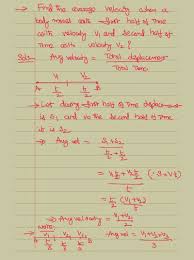 → Find the average velocity when a
body moves with first half of time
with velocity V₁ and second half of
time with velocity V₂ ?
Sol:- Avg velocity = Total displacement
Total Time
V₁ V₂
A t/2 t/2 B
→ Let during first half of time displacement
is S₁ and for the second half of time
it is S₂
→ Avg vel = S₁+S₂
t/2 + t/2
= V₁t/2 + V₂t/2 (∵ S=Vt)
t/2 + t/2
→ Avg velocity = V₁+V₂
2
Note:-
V₁ V₂ V₃ Avg vel = V₁+V₂+V₃
A t/3 t/3 t/3 B 3